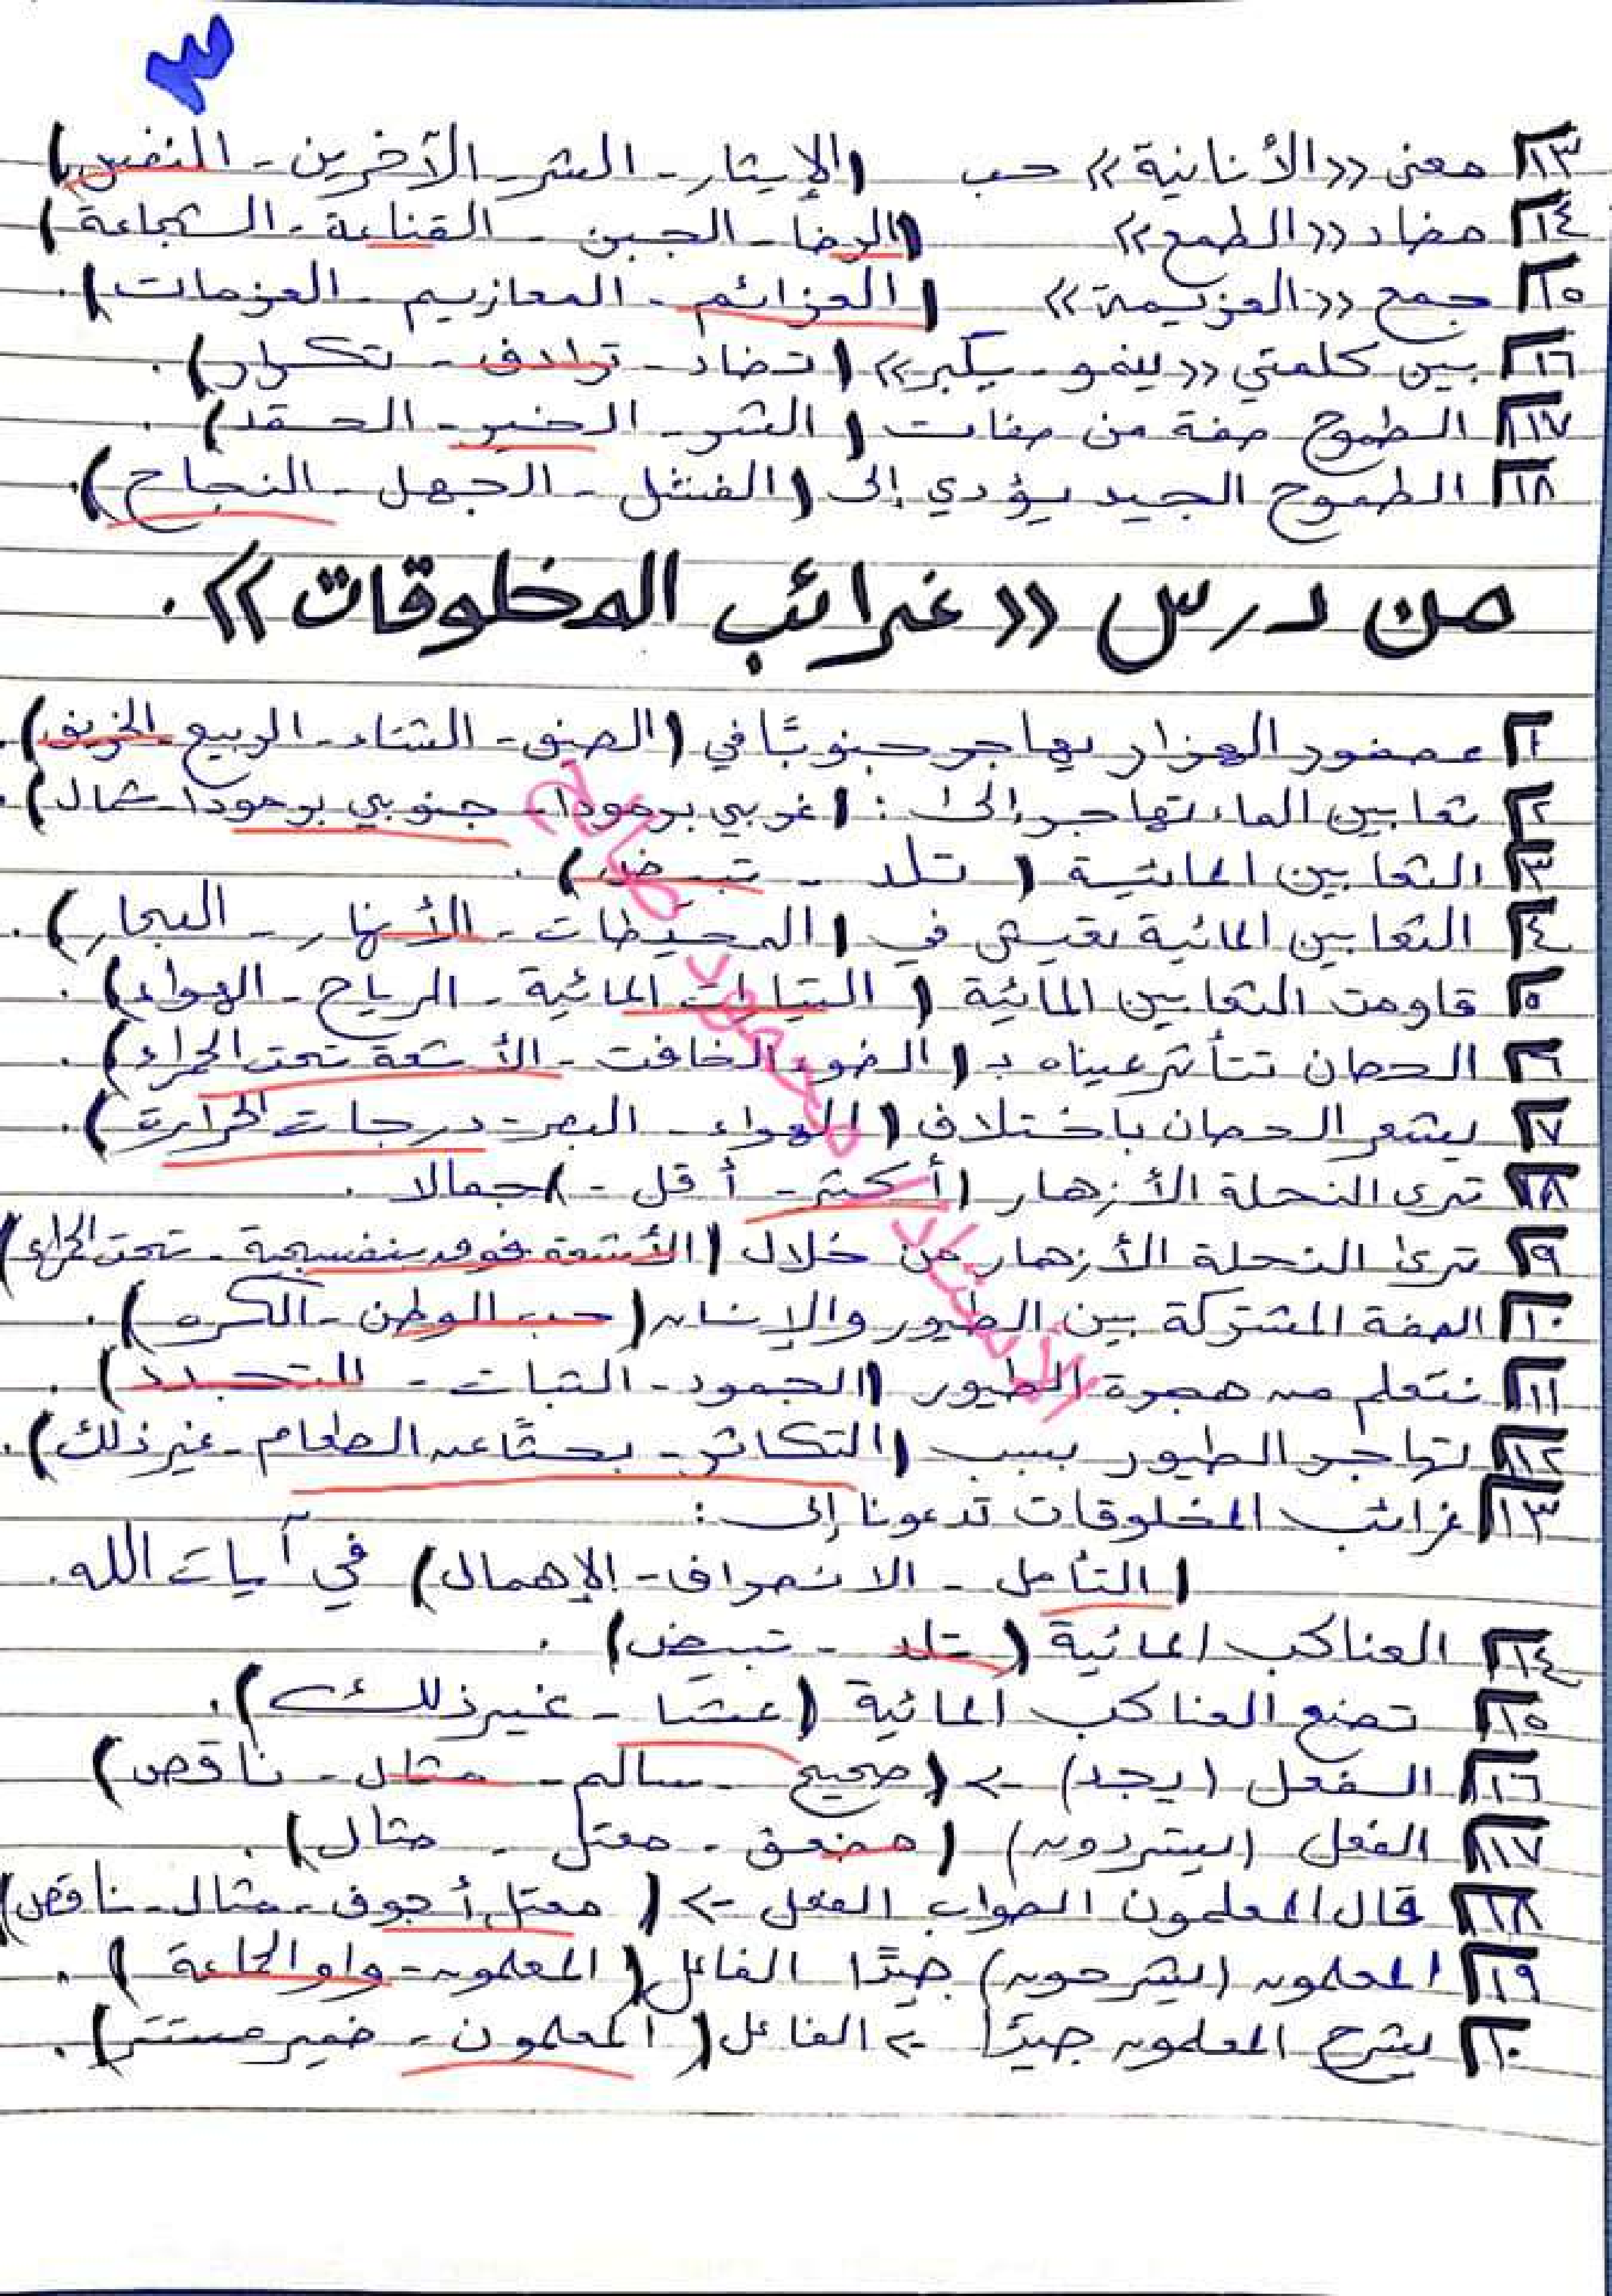 ٣
١٣ معنى «الأنانية» حب (الإيثار - الشر - الآخرين - النفس)
١٤ مضاد «الطمع» (الرضا - الجبن - القناعة - الشجاعة)
١٥ جمع «العزيمة» (العزائم - المعازيم - العزمات).
١٦ بين كلمتي «ينمو - يكبر» (تضاد - ترادف - تكرار).
١٧ الطموح صفة من صفات (الشر - الخير - الحقد).
١٨ الطموح الجيد يؤدي إلى (الفشل - الجهل - النجاح).
من درس «غرائب المخلوقات».
١ عصفور الهزار يهاجر جنوبًا في (الصيف - الشتاء - الربيع - الخريف).
٢ ثعابين الماء تهاجر إلى: (غربي برمودا - جنوبي برمودا - شمال).
٣ الثعابين المائية (تلد - تبيض).
٤ الثعابين المائية تعيش في (المحيطات - الأنهار - البحار).
٥ قاومت الثعابين المائية (التيارات المائية - الرياح - الهواء).
٦ الحصان تتأثر عيناه بـ (الضوء الخافت - الأشعة تحت الحمراء).
٧ يشعر الحصان باختلاف (الهواء - البصر - درجات الحرارة).
٨ ترى النحلة الأزهار (أكثر - أقل -) جمالا.
٩ ترى النحلة الأزهار من خلال (الأشعة فوق بنفسجية - تحت الحمراء)
١٠ الصفة المشتركة بين الطيور والإنسان (حب الوطن - الكره).
١١ نتعلم من هجرة الطيور (الجمود - الثبات - التجدد).
١٢ تهاجر الطيور بسبب (التكاثر - بحثًا عن الطعام - غير ذلك).
١٣ غرائب المخلوقات تدعونا إلى:
(التأمل - الانصراف - الإهمال) في آيات الله.
١٤ العناكب المائية (تلد - تبيض).
١٥ تصنع العناكب المائية (عشا - غير ذلك).
١٦ الفعل (يجد) -> (صحيح - سالم - مثال - ناقص)
١٧ الفعل (يستردون) (مضعف - معتل - مثال).
١٨ قال المعلمون الصواب الفعل -> (معتل أجوف - مثال - ناقص)
١٩ المعلمون (يشرحون) جيدًا الفاعل (المعلمون - واو الجماعة).
٢٠ يشرح المعلمون جيدًا -> الفاعل (المعلمون - ضمير مستتر).